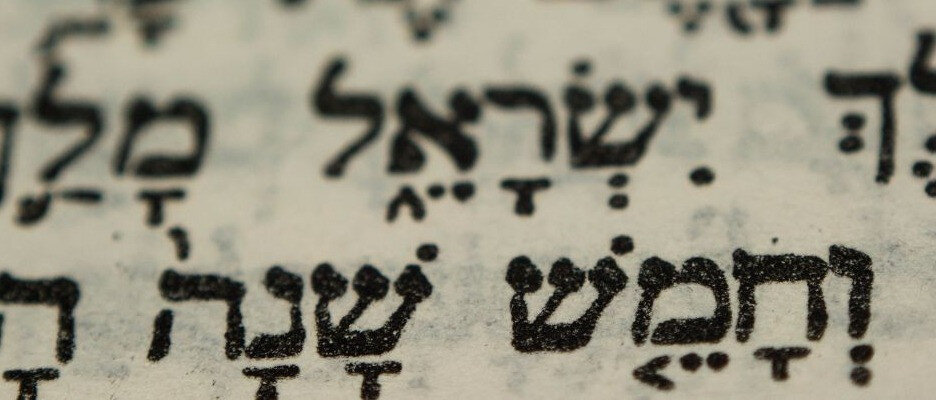 לֶךְ יִשְׂרָאֵ֑ל מָלַ֛ךְ
וְחָמֵ֤שׁ שָׁנָה֙ הָ